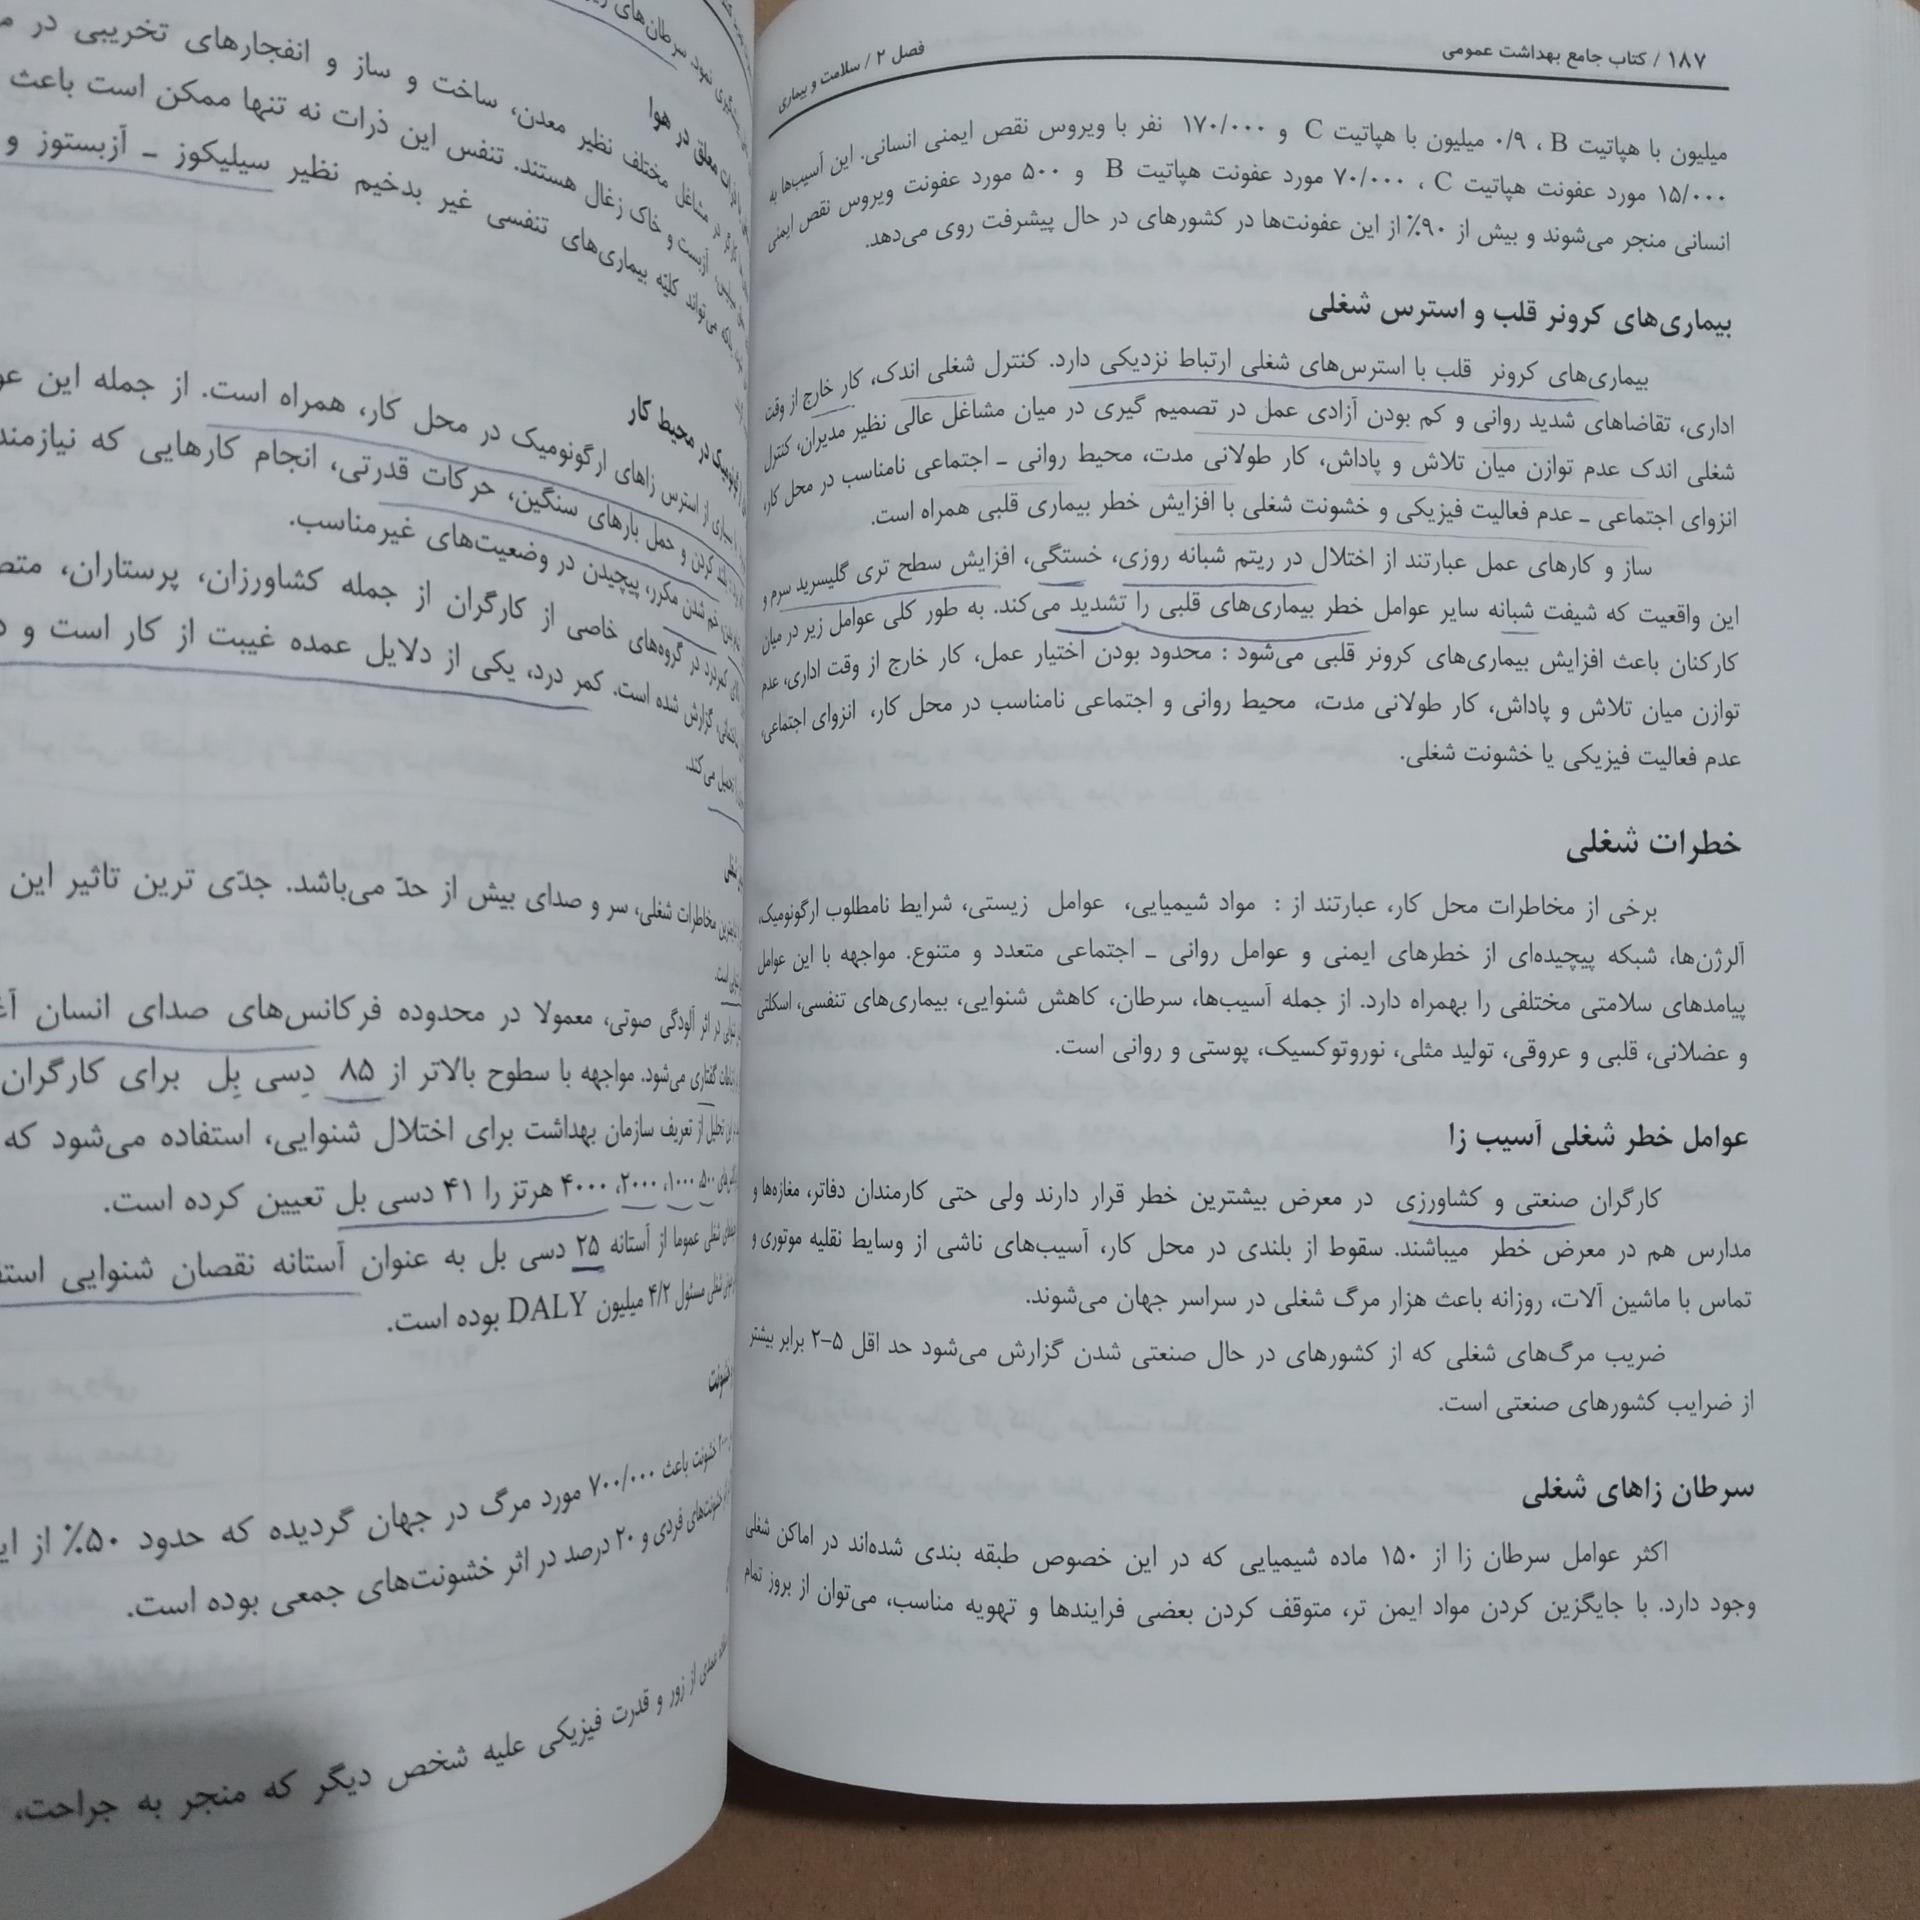 ۱۸۷ / کتاب جامع بهداشت عمومی
فصل ۲ / سلامت و بیماری
میلیون با هپاتیت B ، ۰/۹ میلیون با هپاتیت C و ۱۷۰/۰۰۰ نفر با ویروس نقص ایمنی انسانی. این آسیب‌ها به
۱۵/۰۰۰ مورد عفونت هپاتیت C ، ۷۰/۰۰۰ مورد عفونت هپاتیت B و ۵۰۰ مورد عفونت ویروس نقص ایمنی
انسانی منجر می‌شوند و بیش از ۹۰٪ از این عفونت‌ها در کشورهای در حال پیشرفت روی می‌دهد.
بیماری‌های کرونر قلب و استرس شغلی
بیماری‌های کرونر قلب با استرس‌های شغلی ارتباط نزدیکی دارد. کنترل شغلی اندک، کار خارج از وقت
اداری، تقاضاهای شدید روانی و کم بودن آزادی عمل در تصمیم گیری در میان مشاغل عالی نظیر مدیران، کنترل
شغلی اندک عدم توازن میان تلاش و پاداش، کار طولانی مدت، محیط روانی ـ اجتماعی نامناسب در محل کار،
انزوای اجتماعی ـ عدم فعالیت فیزیکی و خشونت شغلی با افزایش خطر بیماری قلبی همراه است.
ساز و کارهای عمل عبارتند از اختلال در ریتم شبانه روزی، خستگی، افزایش سطح تری گلیسرید سرم و
این واقعیت که شیفت شبانه سایر عوامل خطر بیماری‌های قلبی را تشدید می‌کند. به طور کلی عوامل زیر در میان
کارکنان باعث افزایش بیماری‌های کرونر قلبی می‌شود : محدود بودن اختیار عمل، کار خارج از وقت اداری، عدم
توازن میان تلاش و پاداش، کار طولانی مدت، محیط روانی و اجتماعی نامناسب در محل کار، انزوای اجتماعی،
عدم فعالیت فیزیکی یا خشونت شغلی.
خطرات شغلی
برخی از مخاطرات محل کار، عبارتند از : مواد شیمیایی، عوامل زیستی، شرایط نامطلوب ارگونومیک،
آلرژن‌ها، شبکه پیچیده‌ای از خطرهای ایمنی و عوامل روانی ـ اجتماعی متعدد و متنوع. مواجهه با این عوامل
پیامدهای سلامتی مختلفی را بهمراه دارد. از جمله آسیب‌ها، سرطان، کاهش شنوایی، بیماری‌های تنفسی، اسکلتی
و عضلانی، قلبی و عروقی، تولید مثلی، نوروتوکسیک، پوستی و روانی است.
عوامل خطر شغلی آسیب زا
کارگران صنعتی و کشاورزی در معرض بیشترین خطر قرار دارند ولی حتی کارمندان دفاتر، مغازه‌ها و
مدارس هم در معرض خطر میباشند. سقوط از بلندی در محل کار، آسیب‌های ناشی از وسایط نقلیه موتوری و
تماس با ماشین آلات، روزانه باعث هزار مرگ شغلی در سراسر جهان می‌شوند.
ضریب مرگ‌های شغلی که از کشورهای در حال صنعتی شدن گزارش می‌شود حد اقل ۵-۲ برابر بیشتر
از ضرایب کشورهای صنعتی است.
سرطان زاهای شغلی
اکثر عوامل سرطان زا از ۱۵۰ ماده شیمیایی که در این خصوص طبقه بندی شده‌اند در اماکن شغلی
وجود دارد. با جایگزین کردن مواد ایمن تر، متوقف کردن بعضی فرایندها و تهویه مناسب، می‌توان از بروز تمام
نمود. سرطان‌های
معلق در هوا
مشاغل مختلف نظیر معدن، ساخت و ساز و انفجارهای تخریبی در
آزبست و خاک زغال هستند. تنفس این ذرات نه تنها ممکن است باعث
می‌تواند کلیه بیماری‌های تنفسی غیر بدخیم نظیر سیلیکوز ـ آزبستوز و
در محیط کار
بسیاری از استرس زاهای ارگونومیک در محل کار، همراه است. از جمله این
بلند کردن و حمل بارهای سنگین، حرکات قدرتی، انجام کارهایی که نیازمند
خم شدن مکرر، پیچیدن در وضعیت‌های غیرمناسب.
کمردرد در گروه‌های خاصی از کارگران از جمله کشاورزان، پرستاران،
گزارش شده است. کمر درد، یکی از دلایل عمده غیبت از کار است و
تحمیل می‌کند.
مخاطرات شغلی، سر و صدای بیش از حدّ می‌باشد. جدّی ترین تاثیر این
است.
در اثر آلودگی صوتی، معمولا در محدوده فرکانس‌های صدای انسان
گفتاری می‌شود. مواجهه با سطوح بالاتر از ۸۵ دِسی بِل برای کارگران
تحلیل از تعریف سازمان بهداشت برای اختلال شنوایی، استفاده می‌شود که
۵۰۰، ۱۰۰۰، ۲۰۰۰، ۴۰۰۰ هرتز را ۴۱ دسی بل تعیین کرده است.
عموما از آستانه ۲۵ دسی بل به عنوان آستانه نقصان شنوایی
شغلی مسئول ۴/۲ میلیون DALY بوده است.
خشونت
خشونت باعث ۷۰۰/۰۰۰ مورد مرگ در جهان گردیده که حدود ۵۰٪ از
خشونت‌های فردی و ۲۰ درصد در اثر خشونت‌های جمعی بوده است.
عمدی از زور و قدرت فیزیکی علیه شخص دیگر که منجر به جراحت،